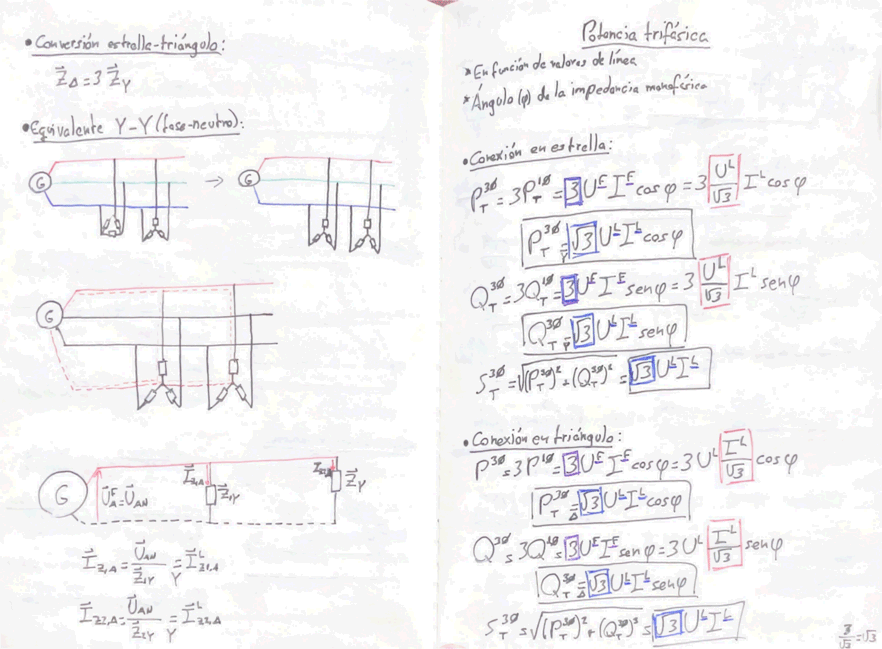 • Conversión estrella-triángulo:
Z⃗Δ = 3 Z⃗Y
• Equivalente Y-Y (fase-neutro):
G → G
G
G U⃗ᶠA = U⃗AN I⃗Z1,A Z⃗1Y Z⃗Y
I⃗Z1,A = U⃗AN / Z⃗1Y =Y I⃗ᴸZ1,A
I⃗Z2,A = U⃗AN / Z⃗2Y =Y I⃗ᴸZ2,A
Potencia trifásica
* En función de valores de línea
* Ángulo (φ) de la impedancia monofásica
• Conexión en estrella:
P_T^3Ø = 3P_T^1Ø = 3 Uᶠ Iᶠ cos φ = 3 Uᴸ/√3 Iᴸ cos φ
P_T^3Ø =Y √3 Uᴸ Iᴸ cos φ
Q_T^3Ø = 3Q_T^1Ø = 3 Uᶠ Iᶠ sen φ = 3 Uᴸ/√3 Iᴸ sen φ
Q_T^3Ø =Y √3 Uᴸ Iᴸ sen φ
S_T^3Ø = √((P_T^3Ø)² + (Q_T^3Ø)²) = √3 Uᴸ Iᴸ
• Conexión en triángulo:
P^3Ø = 3P^1Ø = 3 Uᶠ Iᶠ cos φ = 3 Uᴸ Iᴸ/√3 cos φ
P_T^3Ø =Δ √3 Uᴸ Iᴸ cos φ
Q^3Ø = 3Q^1Ø = 3 Uᶠ Iᶠ sen φ = 3 Uᴸ Iᴸ/√3 sen φ
Q_T^3Ø =Δ √3 Uᴸ Iᴸ sen φ
S_T^3Ø = √((P_T^3Ø)² + (Q_T^3Ø)²) = √3 Uᴸ Iᴸ
3/√3 = √3